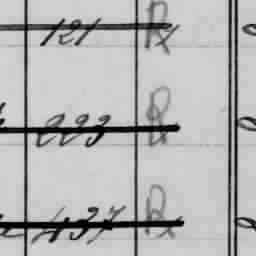 121 R
223 R
437 R